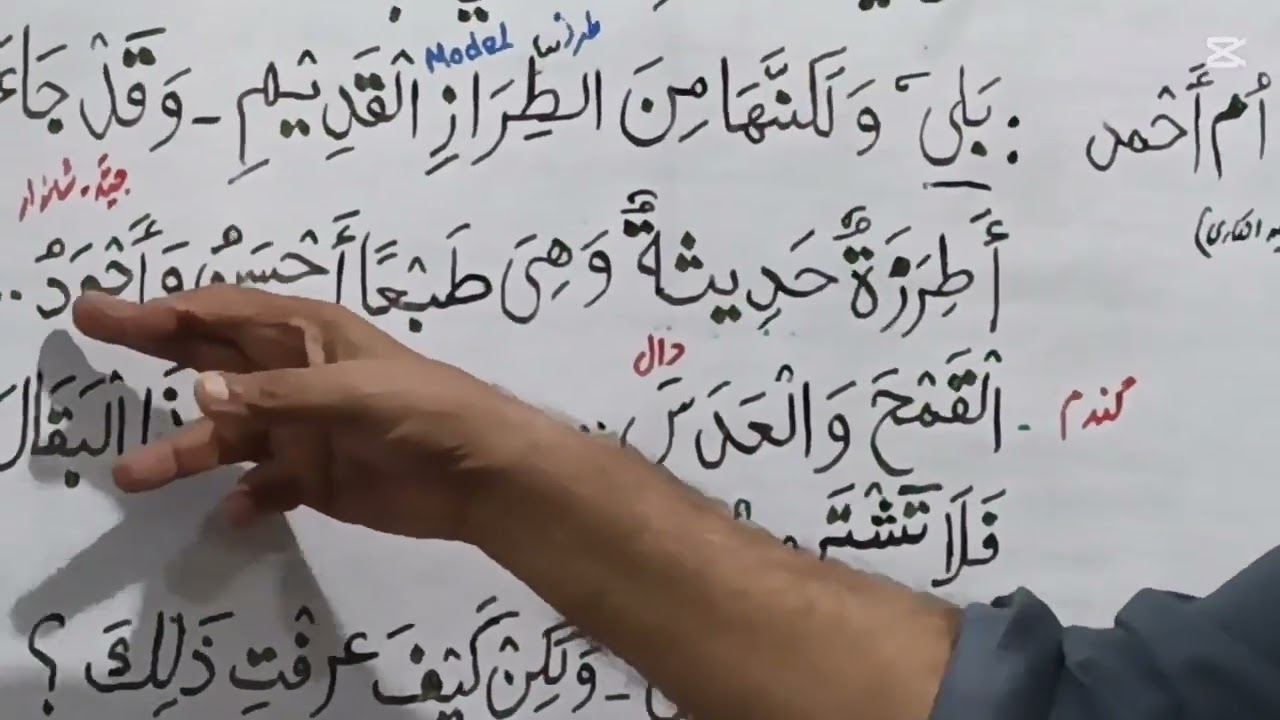 Model طرز
أُم أَحْمد : بَلىٰ وَلَكنَّهَا مِنَ الطِّرَازِ الْقَدِيْمِ - وَقَدْ جَاءَ
أَطِرَزَةٌ حَدِيثةٌ وَهِىَ طَبْعًا أَحْسَنُ وَأَجْوَدُ ..
دال
گندم - الْقَمْحَ وَالْعَدَسَ .. الْبَقَالَ
فَلَا تَشْتَرِ
- وَلَكِنْ كَيْفَ عرفْتِ ذَلِكَ ؟